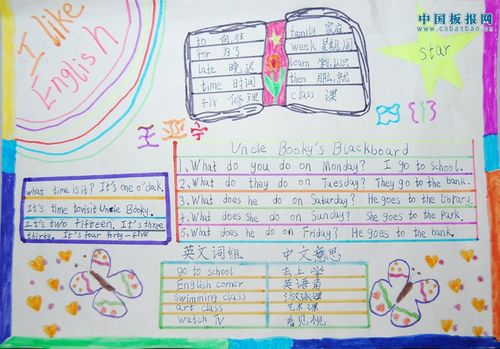 中国板报网
www.cnbanbao.cn
I like
English
star
to 向,往
for 为了
late 晚,迟
time 时间
fix 修理
family 家庭
week 星期,周
learn 学,认识
then 那么,就
class 课
王 亚 宁
Uncle Booky's Blackboard
1、What do you do on Monday? I go to school.
2、What do they do on Tuesday? They go to the bank.
3、What does he do on Saturday? He goes to the library.
4、What does she do on Sunday? She goes to the Park.
5、What does he do on Friday? He goes to the bank.
what time is it? It's one o'clock.
It's time to visit Uncle Booky.
It's two fifteen. It's three
thirty. It's four forty-five
英文词组 中文意思
go to school 去上学
English corner 英语角
swimming class 游泳课
art class 艺术课
watch TV 看电视